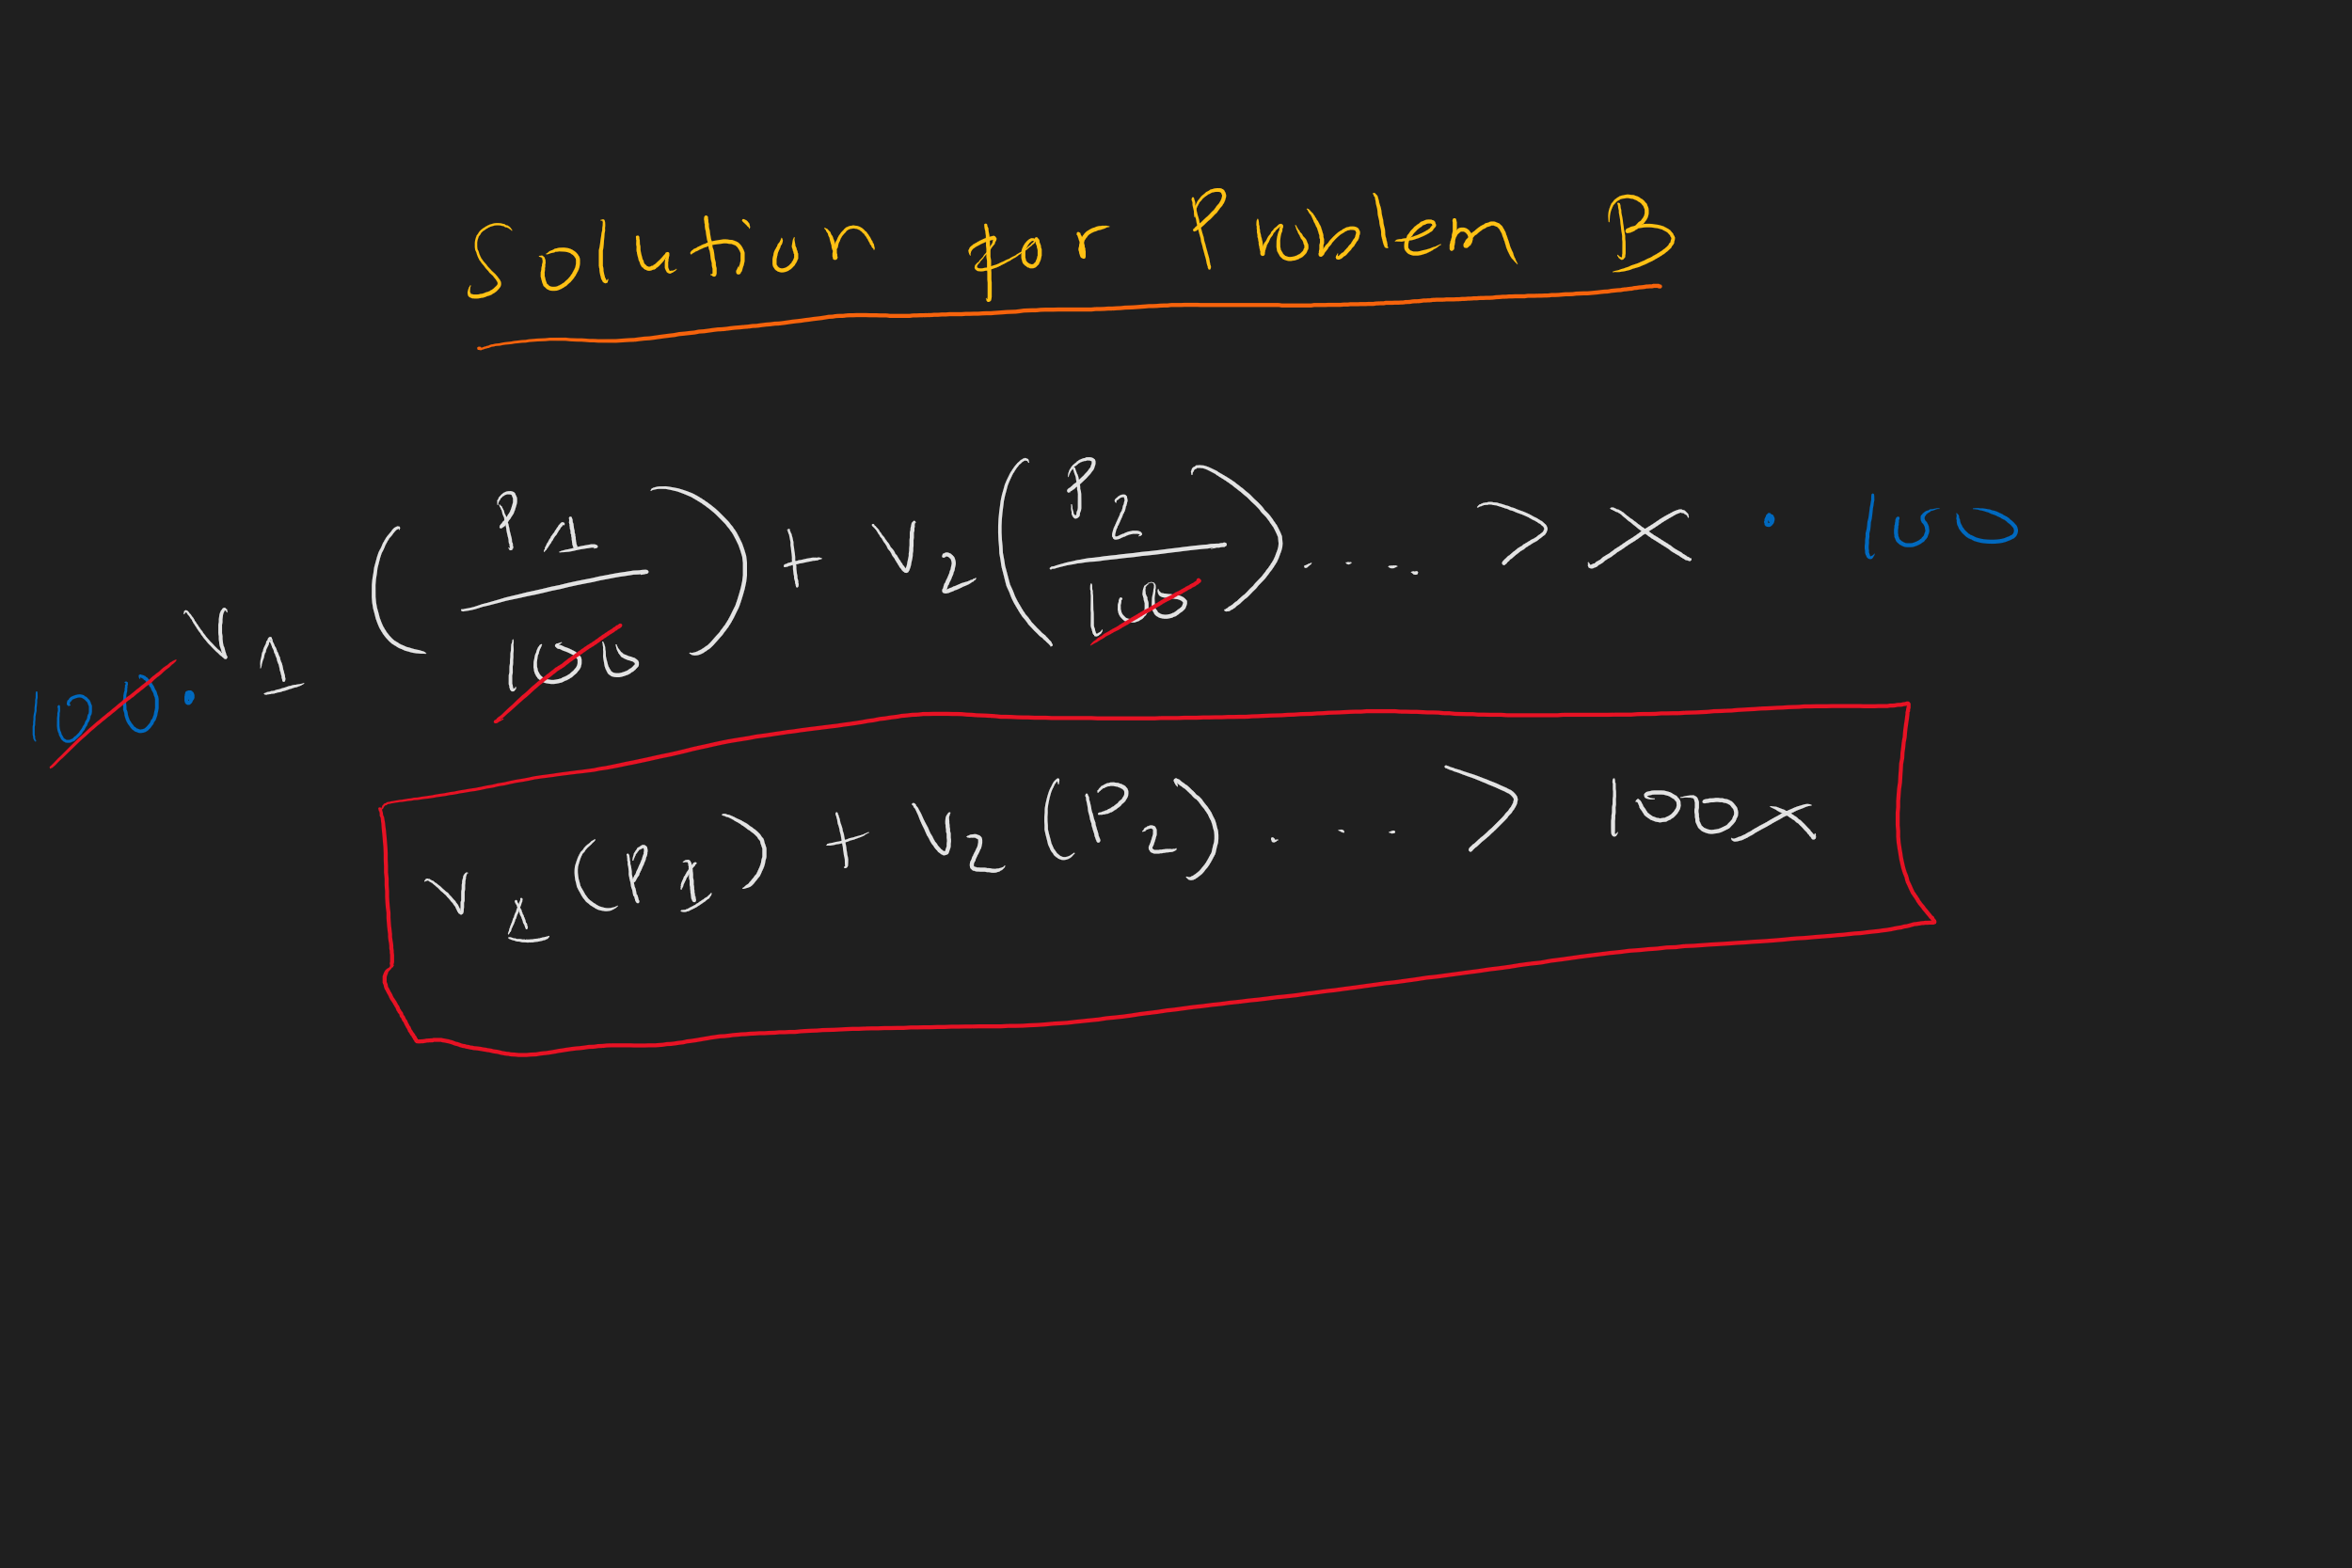 Solution for Problem B
100 · V₁ (P₁/100) + V₂ (P₂/100) .... > x · 100
V₁ (P₁) + V₂ (P₂) ... > 100x